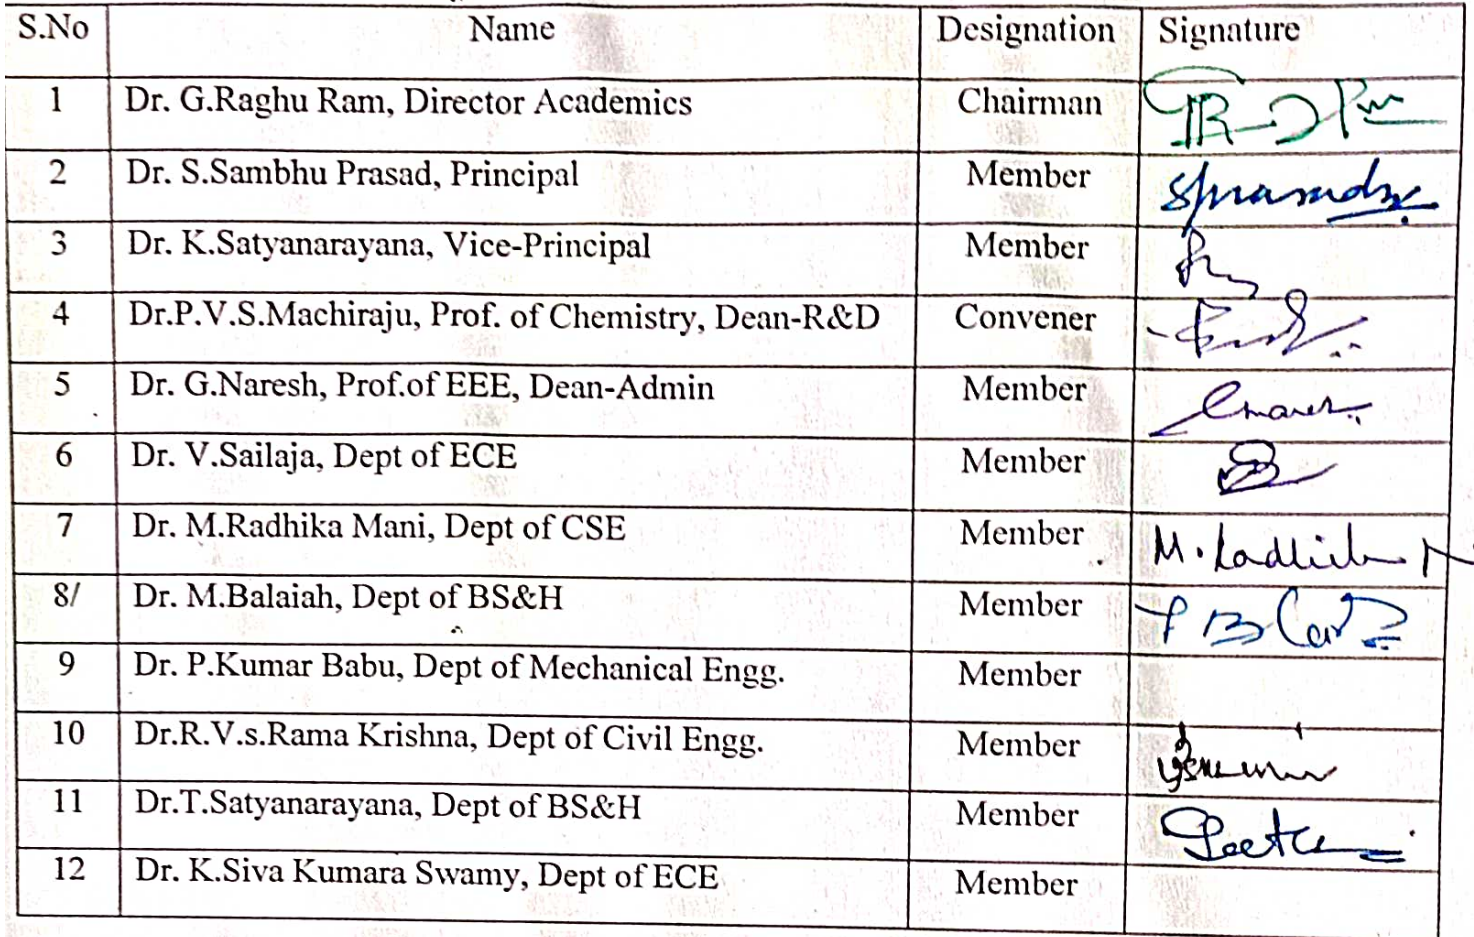 S.No Name Designation Signature
1 Dr. G.Raghu Ram, Director Academics Chairman
2 Dr. S.Sambhu Prasad, Principal Member
3 Dr. K.Satyanarayana, Vice-Principal Member
4 Dr.P.V.S.Machiraju, Prof. of Chemistry, Dean-R&D Convener
5 Dr. G.Naresh, Prof.of EEE, Dean-Admin Member
6 Dr. V.Sailaja, Dept of ECE Member
7 Dr. M.Radhika Mani, Dept of CSE Member
8/ Dr. M.Balaiah, Dept of BS&H Member
9 Dr. P.Kumar Babu, Dept of Mechanical Engg. Member
10 Dr.R.V.s.Rama Krishna, Dept of Civil Engg. Member
11 Dr.T.Satyanarayana, Dept of BS&H Member
12 Dr. K.Siva Kumara Swamy, Dept of ECE Member